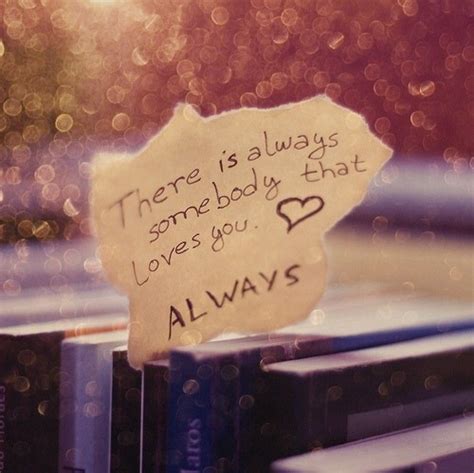 There is always
somebody that
loves you. ♡
ALWAYS
laros